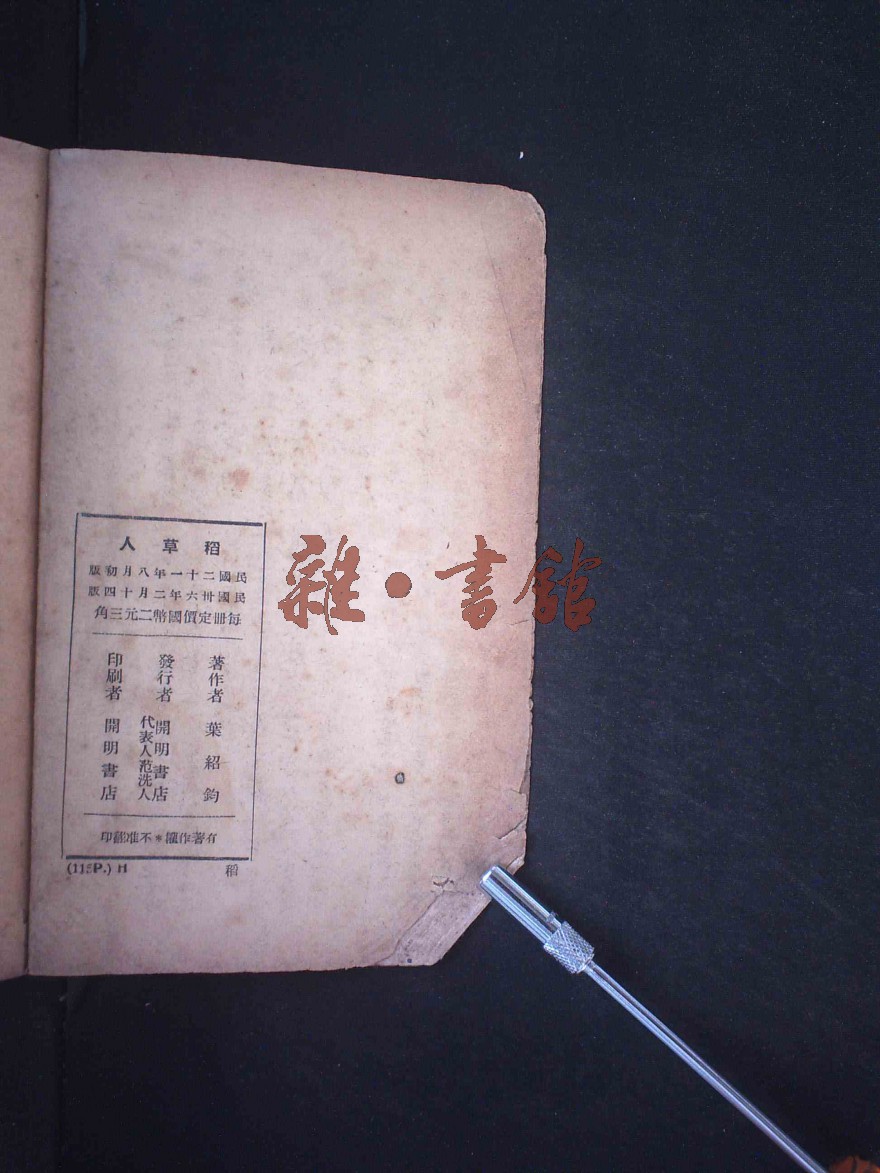 稻草人
民國二十一年八月初版
民國卅六年二月十四版
每冊定價國幣二元三角
著作者 葉紹鈞
發行者 開明書店
代表人范洗人
印刷者 開明書店
有著作權*不准翻印
稻
(115P.) H
雜•書館